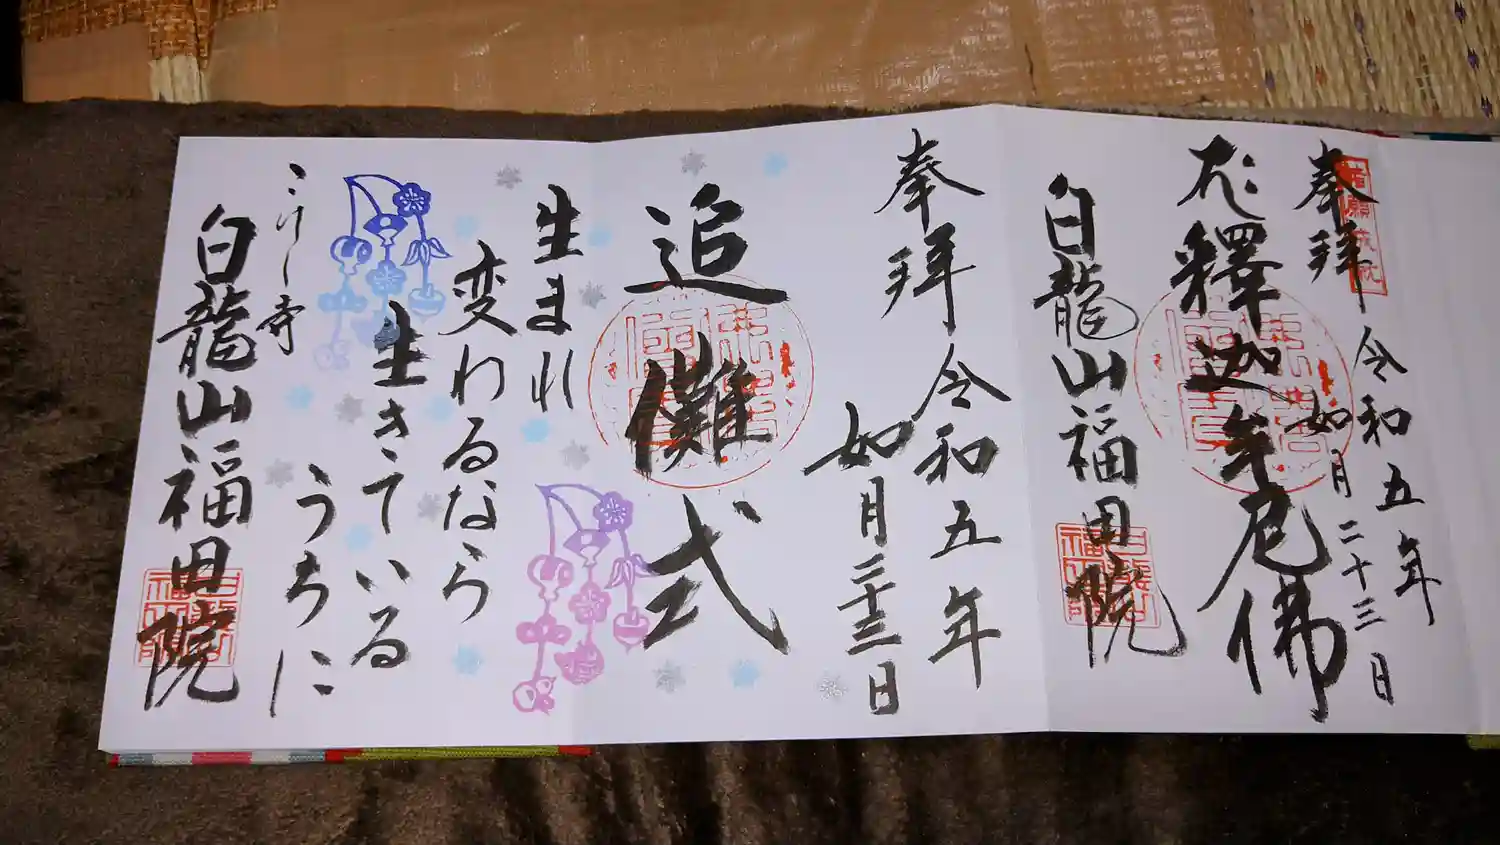 奉拝
令和五年
如月二十三日
釋迦牟尼佛
白龍山福田院
奉拝
令和五年
如月二十三日
追儺式
生まれ
変わるなら
生きている
うちに
こけし寺
白龍山福田院